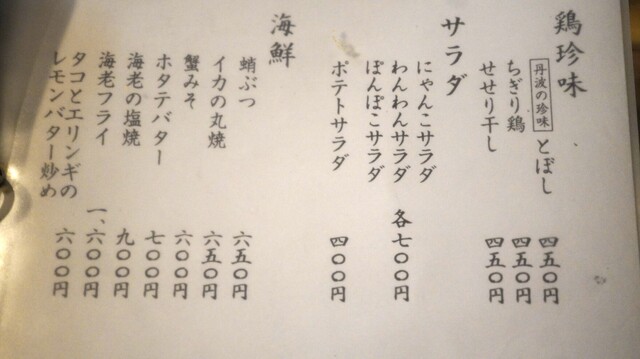 鶏珍味
丹波の珍味 とぼし 四五〇円
ちぎり鶏 四五〇円
せせり干し 四五〇円
サラダ
にゃんこサラダ
わんわんサラダ 各七〇〇円
ぽんぽこサラダ
ポテトサラダ 四〇〇円
海鮮
蛸ぶつ 六五〇円
イカの丸焼 六五〇円
蟹みそ 六〇〇円
ホタテバター 七〇〇円
海老の塩焼 九〇〇円
海老フライ 一、六〇〇円
タコとエリンギの
レモンバター炒め 六〇〇円